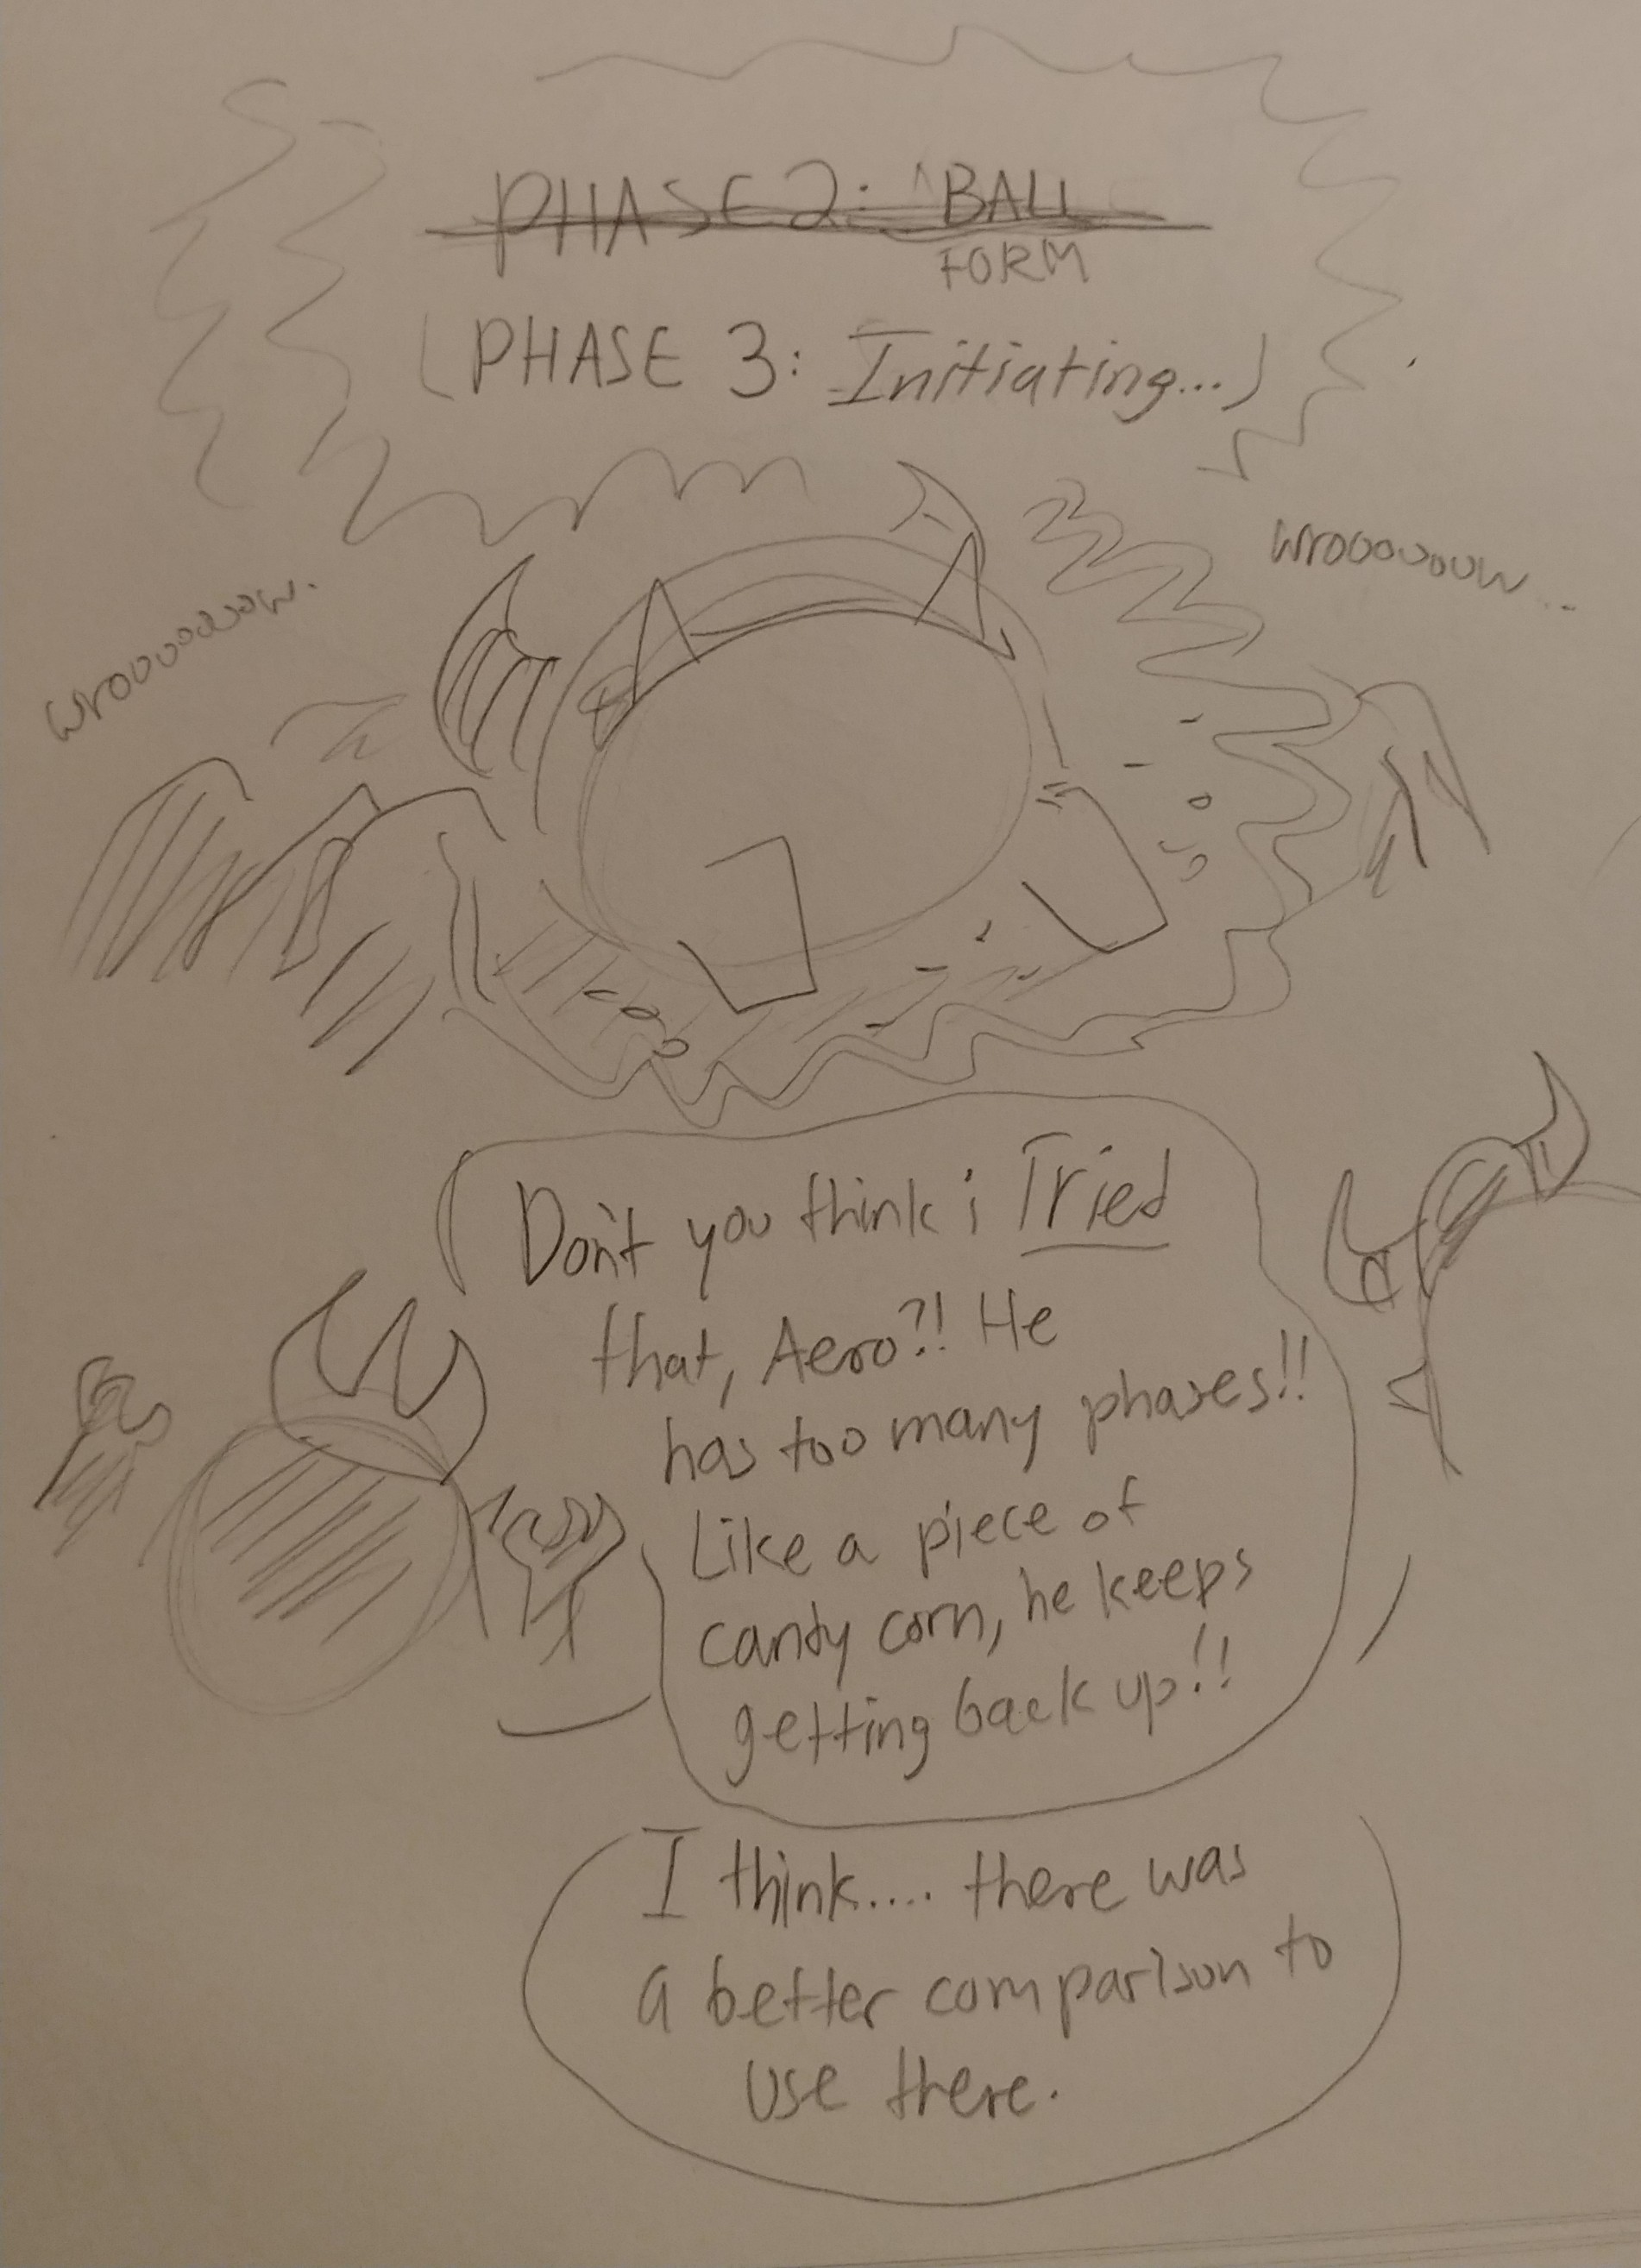 PHASE 2: BALL
FORM
(PHASE 3: Initiating...)
wrooooooow.
wrooooouw...
Don't you think i Tried
that, Aero?! He
has too many phases!!
Like a piece of
candy corn, he keeps
getting back up!!
I think.... there was
a better comparison to
use there.